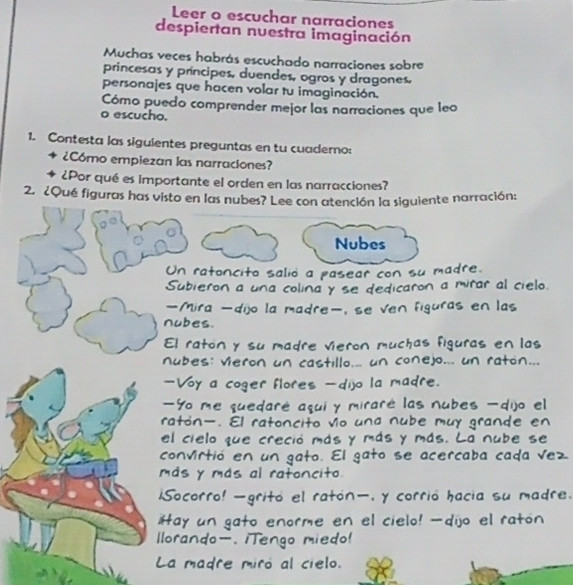 Leer o escuchar narraciones
despiertan nuestra imaginación
Muchas veces habrás escuchado narraciones sobre
princesas y príncipes, duendes, ogros y dragones,
personajes que hacen volar tu imaginación.
Cómo puedo comprender mejor las narraciones que leo
o escucho.
1. Contesta las siguientes preguntas en tu cuaderno:
+ ¿Cómo empiezan las narraciones?
+ ¿Por qué es importante el orden en las narracciones?
2. ¿Qué figuras has visto en las nubes? Lee con atención la siguiente narración:
Nubes
Un ratoncito salió a pasear con su madre.
Subieron a una colina y se dedicaron a mirar al cielo.
—Mira —dijo la madre—, se ven figuras en las
nubes.
El ratón y su madre vieron muchas figuras en las
nubes: vieron un castillo... un conejo... un ratón...
—Voy a coger flores —dijo la madre.
—Yo me quedaré aquí y miraré las nubes —dijo el
ratón—. El ratoncito vio una nube muy grande en
el cielo que creció más y más y más. La nube se
convirtió en un gato. El gato se acercaba cada vez
más y más al ratoncito.
¡Socorro! —gritó el ratón—, y corrió hacia su madre.
¡Hay un gato enorme en el cielo! —dijo el ratón
llorando—. ¡Tengo miedo!
La madre miró al cielo.